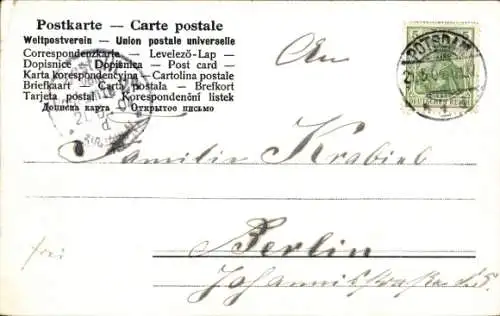 Postkarte — Carte postale
Weltpostverein — Union postale universelle
Correspondenzkarte — Levelező-Lap —
Dopisnice — Dopisnica — Post card —
Karta korespondencyjna — Cartolina postale
Briefkaart — Carta postala — Brefkort
Tarjeta postal — Korespondenční listek
Дописна карта — Открытое письмо
POTSDAM
5
An
Familie Krabiel
Berlin
frei
Johannisstraße